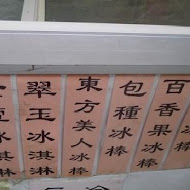 百香果冰棒
包種冰棒
東方美人冰棒
翠玉冰淇淋
冰淇淋